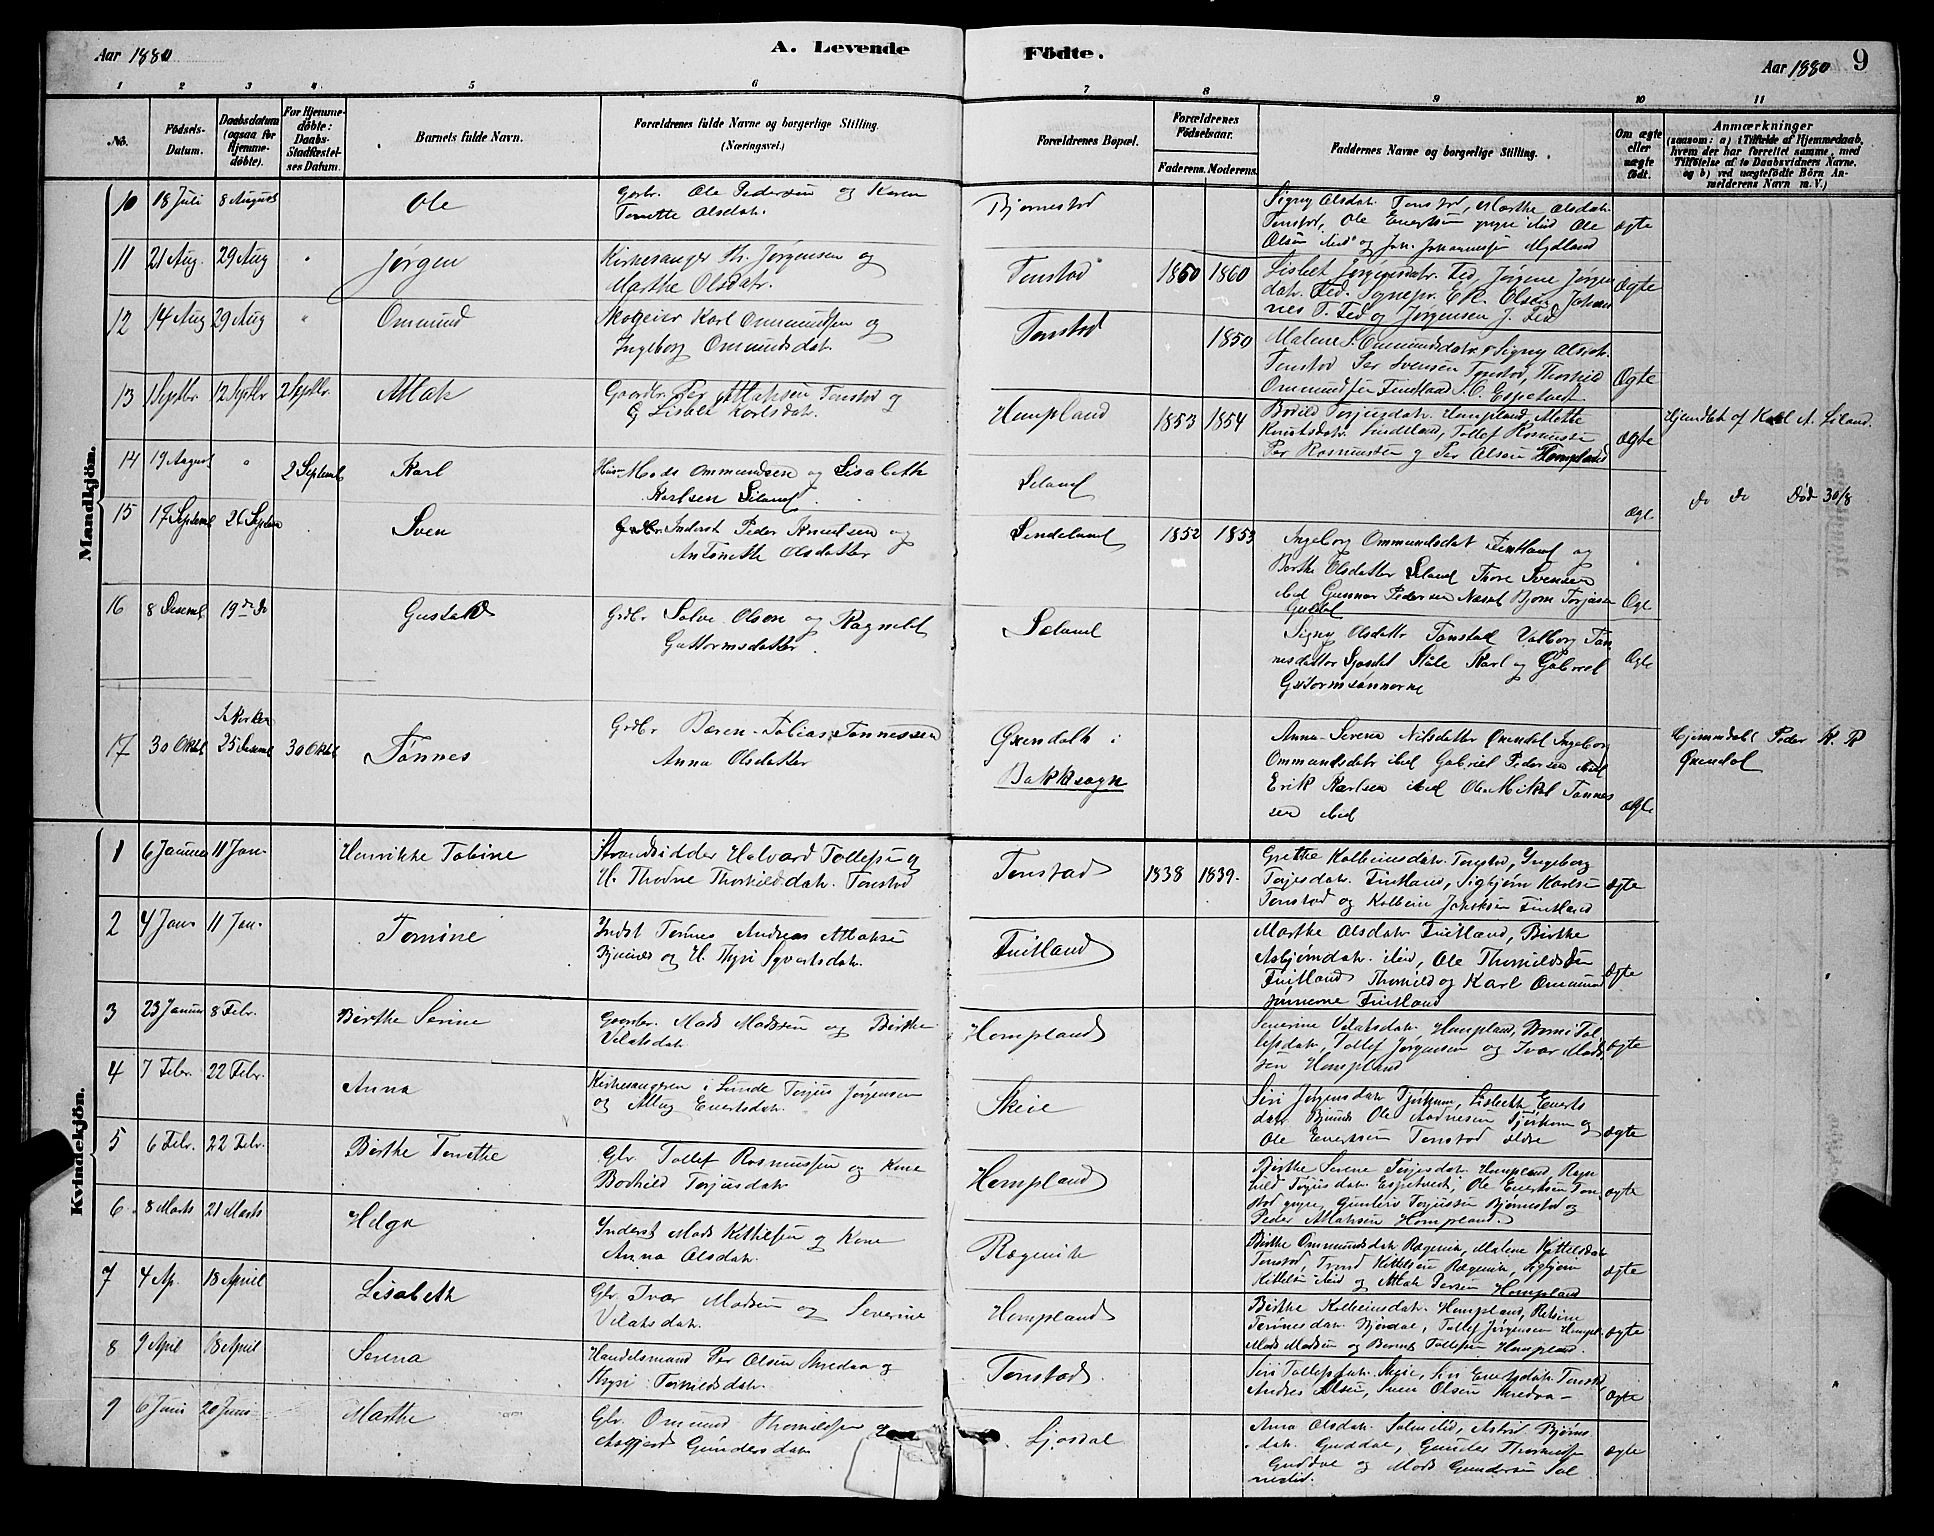 Aar 1880
A. Levende Födte.
Aar 1880 9
1 2 3 4 5 6 7 8 9 10 11
No.
Födsels-Datum.
Daabsdatum (ogsaa for Hjemmedöbte).
For Hjemmedöbte: Daabs-Stadfæstelses Datum.
Barnets fulde Navn.
Forældrenes fulde Navne og borgerlige Stilling. (Næringsvei.)
Forældrenes Bopæl.
Forældrenes Födselsaar.
Faderens. Moderens.
Faddernes Navne og borgerlige Stilling.
Om ægte eller uægte födt.
Anmærkninger
(saasom: a) i Tilfælde af Hjemmedaab,
hvem der har forrettet samme, med
Tilföielse af to Daabsvidners Navne,
og b) ved uægtefödte Börn Anmelderens Navn m. V.)
Mandkjön.
10 18 Juli 8 August Ole
Gbr. Ole Pedersen og Karen
Tonette Olsdatr.
Bjørnestad
Signy Olsdatr. Tonstad, Marthe Olsdatr.
Tonstad, Ole Evertsen yngre ibid Ole
Olsen ibid og Joh. Johannesen Mydland
ægte
11 21 Aug. 29 Aug " Jørgen
Kirkesanger Th. Jørgensen og
Marthe Olsdatr.
Tonstad 1850 1860
Lisbet Jørgensdatr. Fed, Jørgine Jørgens
datr. Fed. Sognepr. E. R. Olsen, Johan
nes T. Fed og Jørgensen J. Fed
Ægte
12 14 Aug 29 Aug " Ommund
Skogeier Karl Ommundsen og
Ingeborg Ommundsdatr.
Tonstad 1850
Malene S. Ommundsdatr. Signy Olsdatr.
Tonstad Per Svensen Tonstad, Thorkild
Ommundsen Fintland S. O. Espetvedt
Ægte
13 1 Septbr. 12 Septbr 2 Septbr. Atlak
Gaardbr. Per Atlaksen Tonstad og
G Lisbet Karlsdatr.
Hompland 1853 1854
Bodild Torjusdatr. Hompland, Mette
Knutsdatr. Sindland, Tollef Rasmussen
Per Rasmussen og Per Olsen Hompland
Ægte
Hjemdøbt af Karl A. Liland.
14 19 August " 2 Septemb Karl
Huusm Mads Ommundsen og Lisabeth
Karlsen Liland
Liland
Ægt
do do Død 30/8
15 17 Septemb 26 Septem Sven
Inderst Peder Knudsen og
Antonette Olsdatter
Sindeland 1852 1853
Ingeborg Ommundsdat Fintland og
Berthe Olsdatter Liland Thore Svensen
ibid Gunnar Pedersen Næset Bjørn Torjusen
Guddal
Ægt
16 8 Desemb 19 de do Gustav
Grdbr Salve Olsen og Ragnild
Guttormsdatter.
Liland
Signy Olsdatter Tonstad Valborg Tøn
nesdatter Ljosdal Ståle Karl og Gabriel
Guttormsønnerne
Ægte
17 30 Oktob i Kirken 25 Desemb 30 Oktob Tønnes
Grdbr Bæren Tobias Tønnessen
Anna Olsdatter
Øxendal i
Bakkesogn
Anna Serena Nilsdatter Øxendal Ingeborg
Ommundsdatr ibid Gabriel Pedersen ibid
Erik Karlsen ibid Ole Mikal Tønnes
sen ibid
ægte
Hjemmdøbt Peder K. R
Øxendal
Kvindekjön.
1 6 Januar 11 Jan. Henrikke Tobine
Strandsidder Halvard Tollefsen og
H. Thodne Thorkildsdatr. Tonstad
Tonstad 1838 1839.
Grethe Kolbeinsdatr. Tonstad, Ingeborg
Torjesdatr. Fintland, Sigbjørn Karlsen
Tonstad og Kolbein Jakobsen Fintland
ægte
2 4 Jan. 11 Jan. Tomine
Indst Tønnes Andreas Atlaksen
og H. Thysi Syvertsdatr.
Fintland
Marthe Olsdatr. Fintland, Birthe
Asbjørndatr. ibid, Ole Thorkildsen
Fintland Thorkild og Karl Ommund
sønnerne Fintland
ægte
3 23 Januar 8 Febr. Birthe Serine
Gaardbr. Mads Madssen og Birthe
Velaksdatr
Hompland
Severine Velaksdatr. Hompland, Berni Tol
lefsdatr, Tollef Jørgensen og Ivar Mads
sen Hompland
ægte
4 7 Febr. 22 Febr. Anna
Kirkesangeren i Lunde Torjus Jørgensen
og Atlug Evertsdatr.
Skeie
Siri Jørgensdatr Tjørhom, Lisbeth Everts
datr. Bjunes Ole Aadnesen Tjørhom og
Ole Evertsen Tonstad ældre
ægte
5 6 Febr. 22 Febr. Birthe Tonette
Gbr. Tollef Rasmussen og Kone
Borhild Torjusdatr
Hompland
Birthe Serene Torjesdatr. Hompland, Ragn
hild Torjusdatr. Espetvedt, Ole Evertsen Ton
stad yngre, Gunleiv Torjussen Bjørnestad og
Peder Atlaksen Hompland.
ægte
6 8 Marts 21 Marts Helga
Inderst Mads Kittilsen og Kone
Anna Olsdatr.
Rægevik
Birthe Ommundsdatr Rægevik, Malene Kittelsdatr
Tonstad, Trond Kittelsen Rægevik, Sigbjørn
Kittelsen ibid og Atlak Persen Hompland
ægte
7 4 Ap. 18 April Lisabeth
Gbr. Ivar Madsen og Severine
Velaksdatr.
Hompland
Birthe Kolbeinsdatr. Hompland, Retsine
Tønnesdatr Bjørdal, Tollef Jørgensen Hompl.
Mads Madsen og Bernt Tollefsen Hompland.
ægte
8 9 April 18 April Serena
Handelsmand Per Olsen Aredaa og
Thysi Torkildsdatr.
Tonstad.
Siri Tollefsdatr Skeie, Siri Evertsdatr Tonstad,
Andreas Olsen, Sven Olsen Aredaa -
ægte
9 6 Juni 20 Juni Marthe
Gbr. Omund Thorkildsen og
Asgjerd Gundersdatr
Ljosdal
Anna Olsdatr. Salmelid, Astrid Bjørns
datr. Guddal, Gunder Thorkildsen
Guddal og Mads Gundersen Sal
melid.
ægte